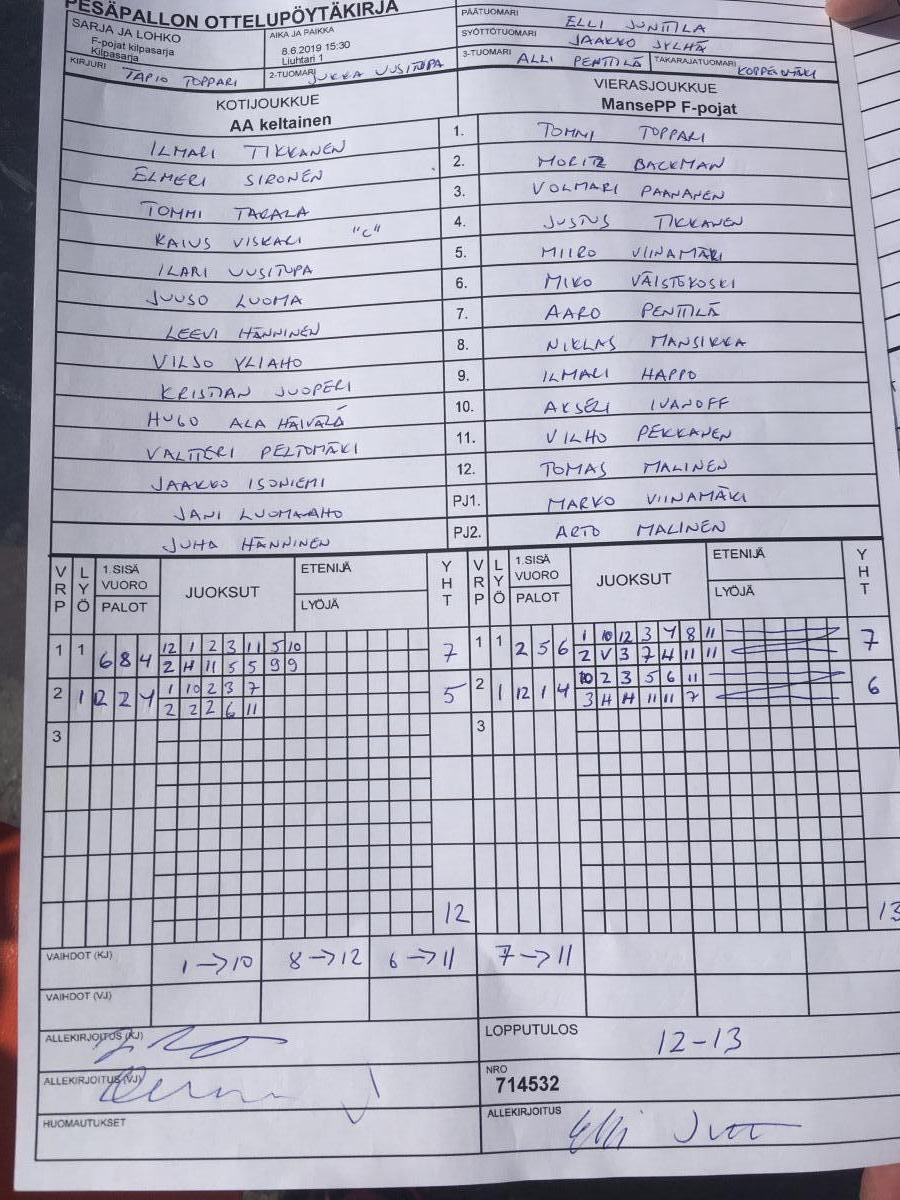 PESÄPALLON OTTELUPÖYTÄKIRJA
SARJA JA LOHKO
F-pojat kilpasarja
Kilpasarja
AIKA JA PAIKKA
8.6.2019 15:30
Liuhtari 1
PÄÄTUOMARI ELLI JUNTTILA
SYÖTTÖTUOMARI JAAKKO JYLHÄ
KIRJURI TAPIO TOPPARI
2-TUOMARI JUKKA UUSITUPA
3-TUOMARI ALLI PENTTILÄ
TAKARAJATUOMARI
KOTIJOUKKUE
AA keltainen
VIERASJOUKKUE
MansePP F-pojat
ILMARI TIKKANEN 1. TOMMI TOPPARI
ELMERI SIRONEN 2. MORITZ BACKMAN
TOMMI TAKALA 3. VOLMARI PAANANEN
KAIUS VISKARI "C" 4. JUSTUS TIKKANEN
ILARI UUSITUPA 5. MIIRO VIINAMÄKI
JUUSO LUOMA 6. MIKO VÄISTÖKOSKI
LEEVI HÄNNINEN 7. AARO PENTTILÄ
VILJO YLIAHO 8. NIKLAS MANSIKKA
KRISTIAN JUOPERI 9. ILMARI HAPPO
HUGO ALA HÄIVÄLÄ 10. AKSELI IVANOFF
VALTTERI PELTOMÄKI 11. VILHO PEKKANEN
JAAKKO ISONIEMI 12. TOMAS MALINEN
JANI LUOMAAHO PJ1. MARKO VIINAMÄKI
JUHA HÄNNINEN PJ2. ARTO MALINEN
VRP LYÖ 1.SISÄ VUORO PALOT JUOKSUT ETENIJÄ LYÖJÄ YHT VRP LYÖ 1.SISÄ VUORO PALOT JUOKSUT ETENIJÄ LYÖJÄ YHT
1 1 6 8 4 12 1 2 3 11 5 10 7 1 1 2 5 6 1 10 12 3 4 8 11 7
2 H 11 5 5 9 9 2 V 3 7 4 11 11
2 1 12 2 4 1 10 2 3 7 5 2 1 12 1 4 10 2 3 5 6 11 6
2 2 2 6 11 3 H H 11 11 7
3 3
12 13
VAIHDOT (KJ) 1→10 8→12 6→11 7→11
VAIHDOT (VJ)
ALLEKIRJOITUS (KJ)
LOPPUTULOS 12-13
ALLEKIRJOITUS (VJ)
NRO
714532
HUOMAUTUKSET
ALLEKIRJOITUS Elli